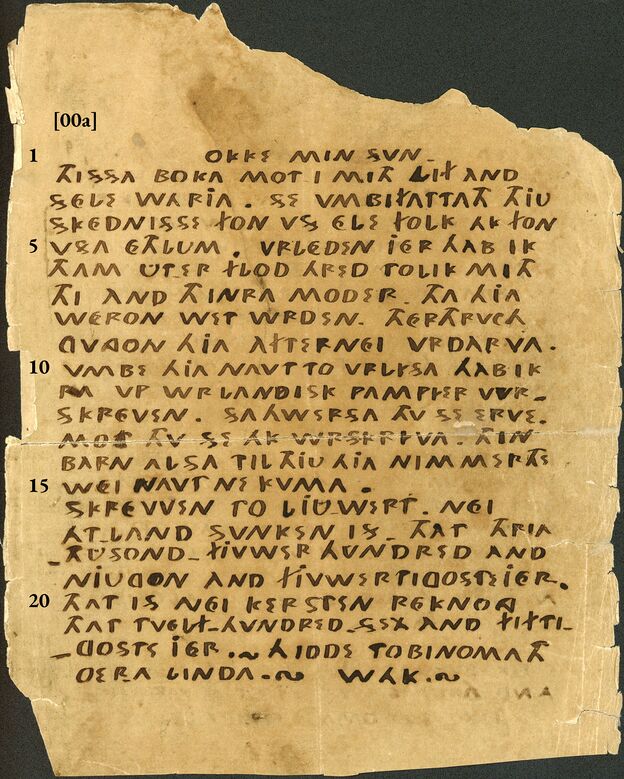 [00a]
1 OKKE MIN SVN_
THISSA BOKA MOT I MITH LIF AND
SELE WARIA . SE VMBIFATTATH THIU
SKEDNISSE FON VS ELE FOLK AK FON
5 VSA ETHLUM . VRLEDEN IER HAB IK
THAM UT.ER FLOD HRED TOLIK MITH
THI AND THINRA MODER. THA HIA
WERON WET WRDEN. THERTHRVCH
GVNGON HIA AFTERNEI VRDARVA .
10 VMBE HIA NAVT TO VRLYSA HAB IK
RA VP WRLANDISK PAMPYER WR_
SKREVEN . SAHWERSA THV SE ERVE.
MOT THV SE AK WRSKRYVA. THIN
BARN ALSA TIL THIU HIA NIMMERTHE
15 WEI NAVT NE KVMA .
SKREVEN TO LIUWERT. NEI
AT.LAND SUNKEN IS_ THAT THRIA
_THUSOND_FIUWER HUNDRED AND
NIUGON AND FIUWERTIGOSTE IER.
20 THAT IS NEI KERSTEN REKNONG
THAT TVELF_HUNDRED_SEX AND FIFTI_
_GOSTE IER.~ HIDDE TOBINOMATH
OERA LINDA.~ WAK.~